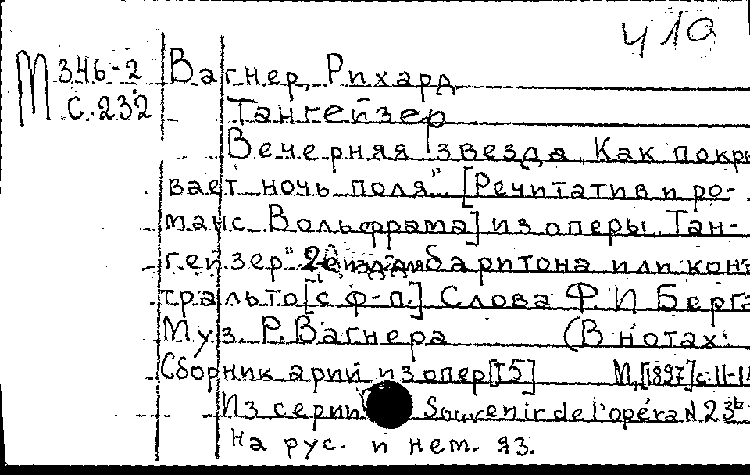 ч19
М 346-2
с. 232
Вагнер, Рихард
Тангейзер
Вечерняя звезда „Как покры
вает ночь поля" [Речитатив и ро-
манс Вольфрама] из оперы „Тан-
гейзер" 2е изд для баритона или конт
тральто [с ф-п.] Слова Ф. И Берга
Муз. Р. Вагнера (В нотах:
Сборник арий из опер [Т5] М, [1897] с.
Из серии Souvenir de l'opéra N 23
На рус. и нем. яз.